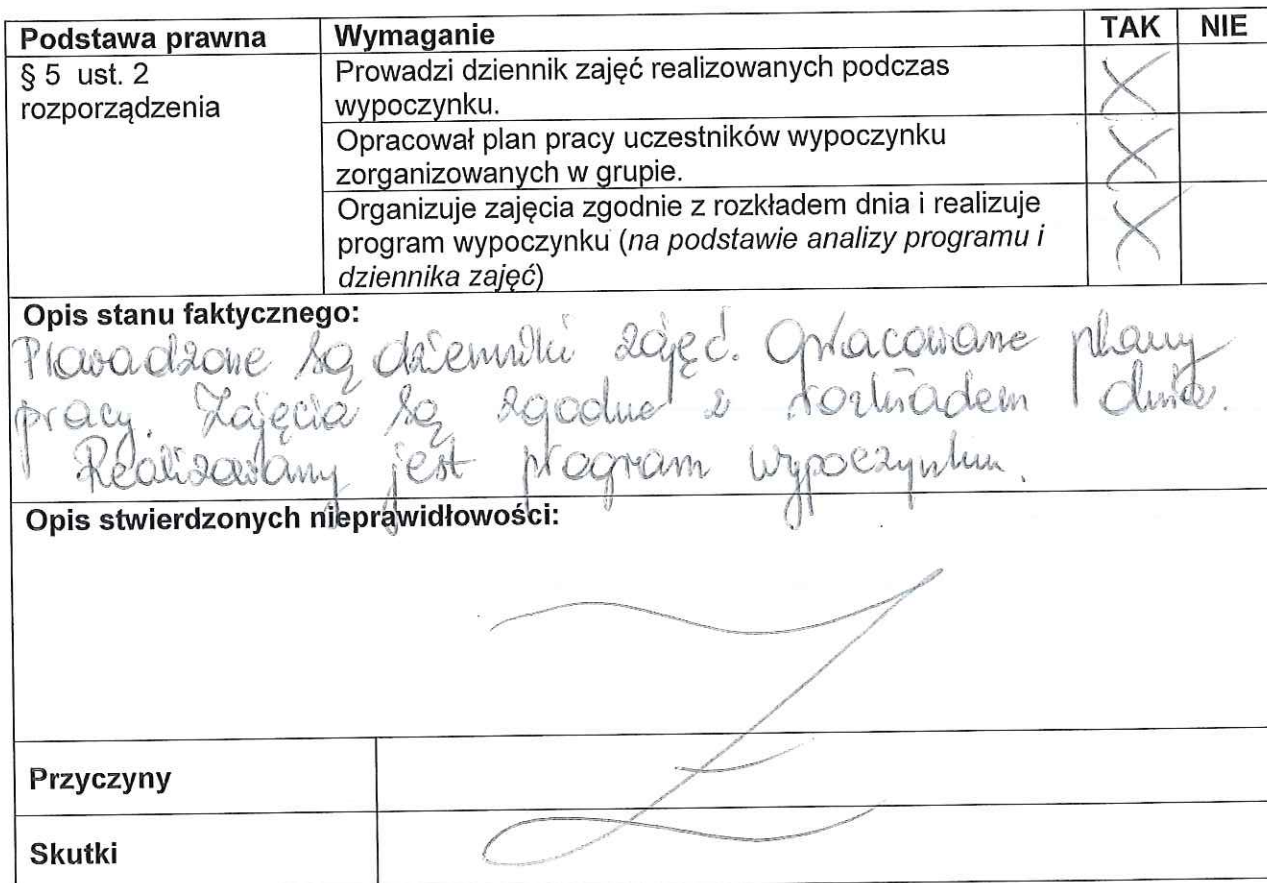 Podstawa prawna Wymaganie TAK NIE
§ 5 ust. 2 rozporządzenia
Prowadzi dziennik zajęć realizowanych podczas
wypoczynku. X
Opracował plan pracy uczestników wypoczynku
zorganizowanych w grupie. X
Organizuje zajęcia zgodnie z rozkładem dnia i realizuje
program wypoczynku (na podstawie analizy programu i
dziennika zajęć) X
Opis stanu faktycznego:
Prowadzone są dzienniki zajęć. Opracowane plany
pracy. Zajęcia są zgodne z rozkładem dnia.
Realizowany jest program wypoczynku.
Opis stwierdzonych nieprawidłowości:
Przyczyny
Skutki